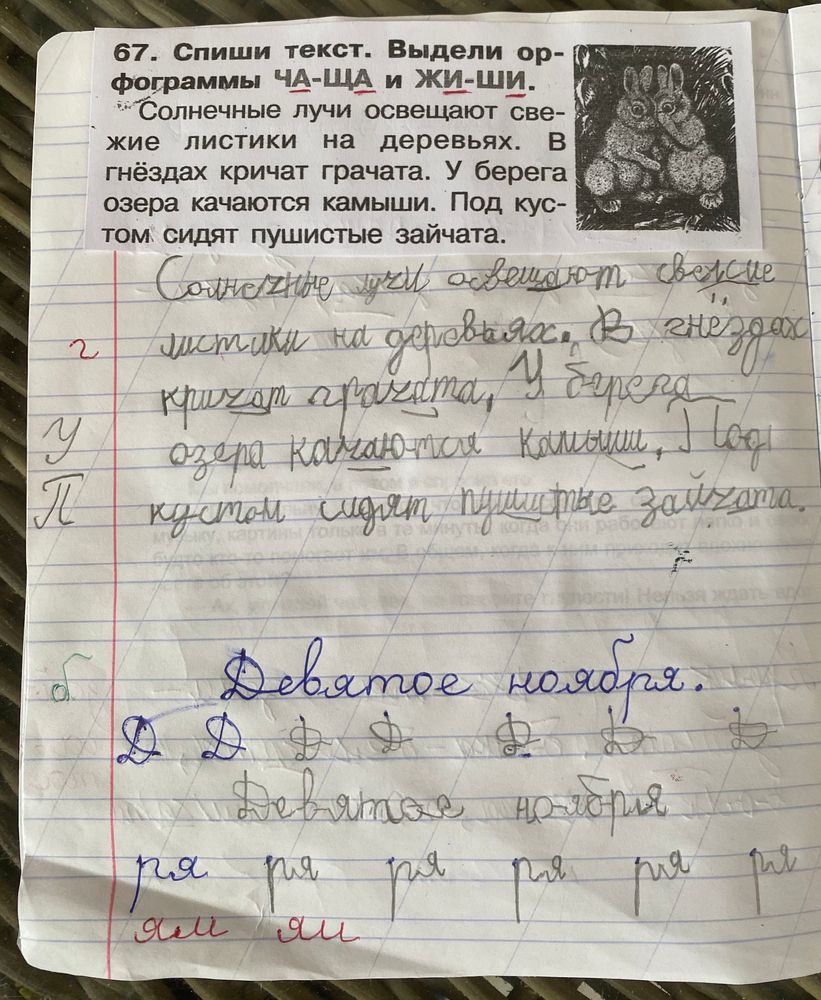 67. Спиши текст. Выдели ор-
фограммы ЧА-ЩА и ЖИ-ШИ.
Солнечные лучи освещают све-
жие листики на деревьях. В
гнёздах кричат грачата. У берега
озера качаются камыши. Под кус-
том сидят пушистые зайчата.
Солнечные лучи освещают свежие
г листики на деревьях. В гнёздах
кричат грачата. У берега
У озера качаются камыши. Под
П кустом сидят пушистые зайчата.
б Девятое ноября.
Д Д Д Д Д Д Д
Девятое ноября
ря ря ря ря ря ря
ям ям